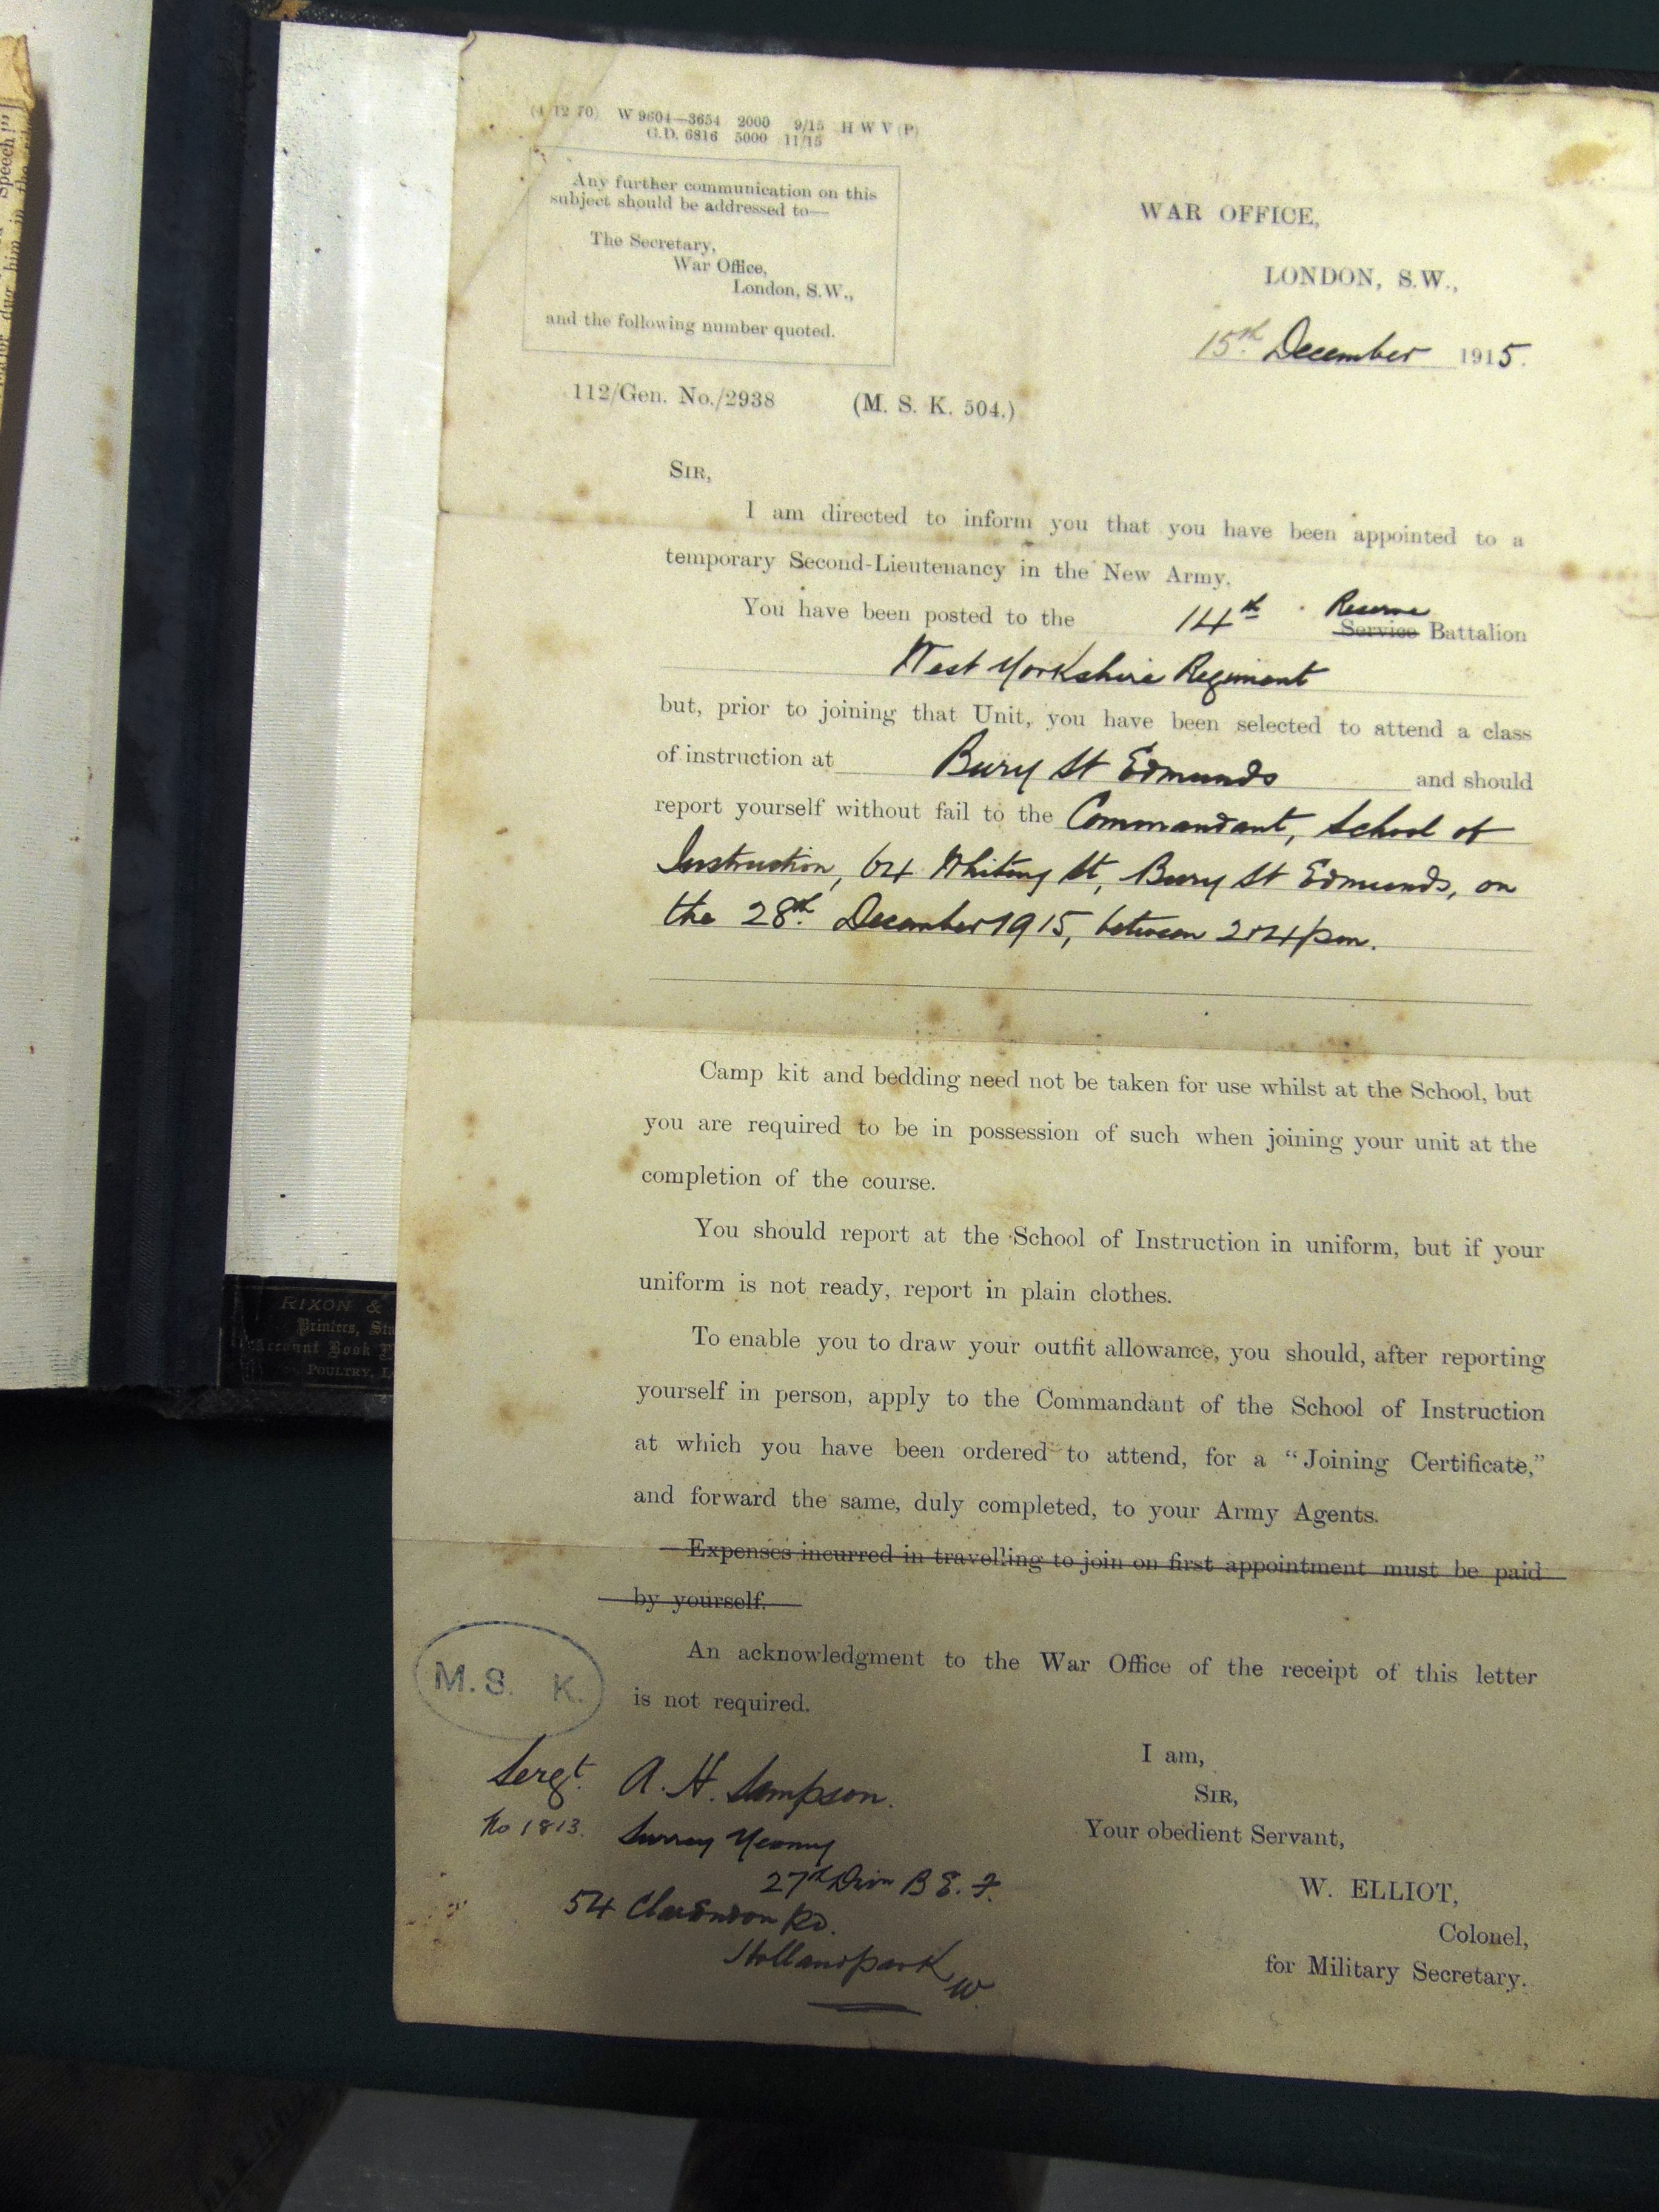 Speech!"
due him in the
(4 12 70) W 9604—3654 2000 9/15 H W V (P)
G.D. 6816 5000 11/15
Any further communication on this
subject should be addressed to—
The Secretary,
War Office,
London, S.W.,
and the following number quoted.
WAR OFFICE,
LONDON, S.W.,
15th December 1915.
112/Gen. No./2938 (M. S. K. 504.)
SIR,
I am directed to inform you that you have been appointed to a
temporary Second-Lieutenancy in the New Army.
You have been posted to the 14th Reserve
Service Battalion
West Yorkshire Regiment
but, prior to joining that Unit, you have been selected to attend a class
of instruction at Bury St Edmunds and should
report yourself without fail to the Commandant, School of
Instruction, 64 Whiting St, Bury St Edmunds, on
the 28th December 1915, between 2 & 4 pm.
Camp kit and bedding need not be taken for use whilst at the School, but
you are required to be in possession of such when joining your unit at the
completion of the course.
You should report at the School of Instruction in uniform, but if your
uniform is not ready, report in plain clothes.
To enable you to draw your outfit allowance, you should, after reporting
yourself in person, apply to the Commandant of the School of Instruction
at which you have been ordered to attend, for a "Joining Certificate,"
and forward the same, duly completed, to your Army Agents.
Expenses incurred in travelling to join on first appointment must be paid
by yourself.
An acknowledgment to the War Office of the receipt of this letter
is not required.
M. S. K.
I am,
SIR,
Your obedient Servant,
W. ELLIOT,
Colonel,
for Military Secretary.
Sergt. A. H. Sampson.
No 1813. Surrey Yeomry
27th Divn B E. F.
54 Clarendon Rd.
Holland park
W
RIXON &
Printers, Sta
Account Book
POULTRY, L